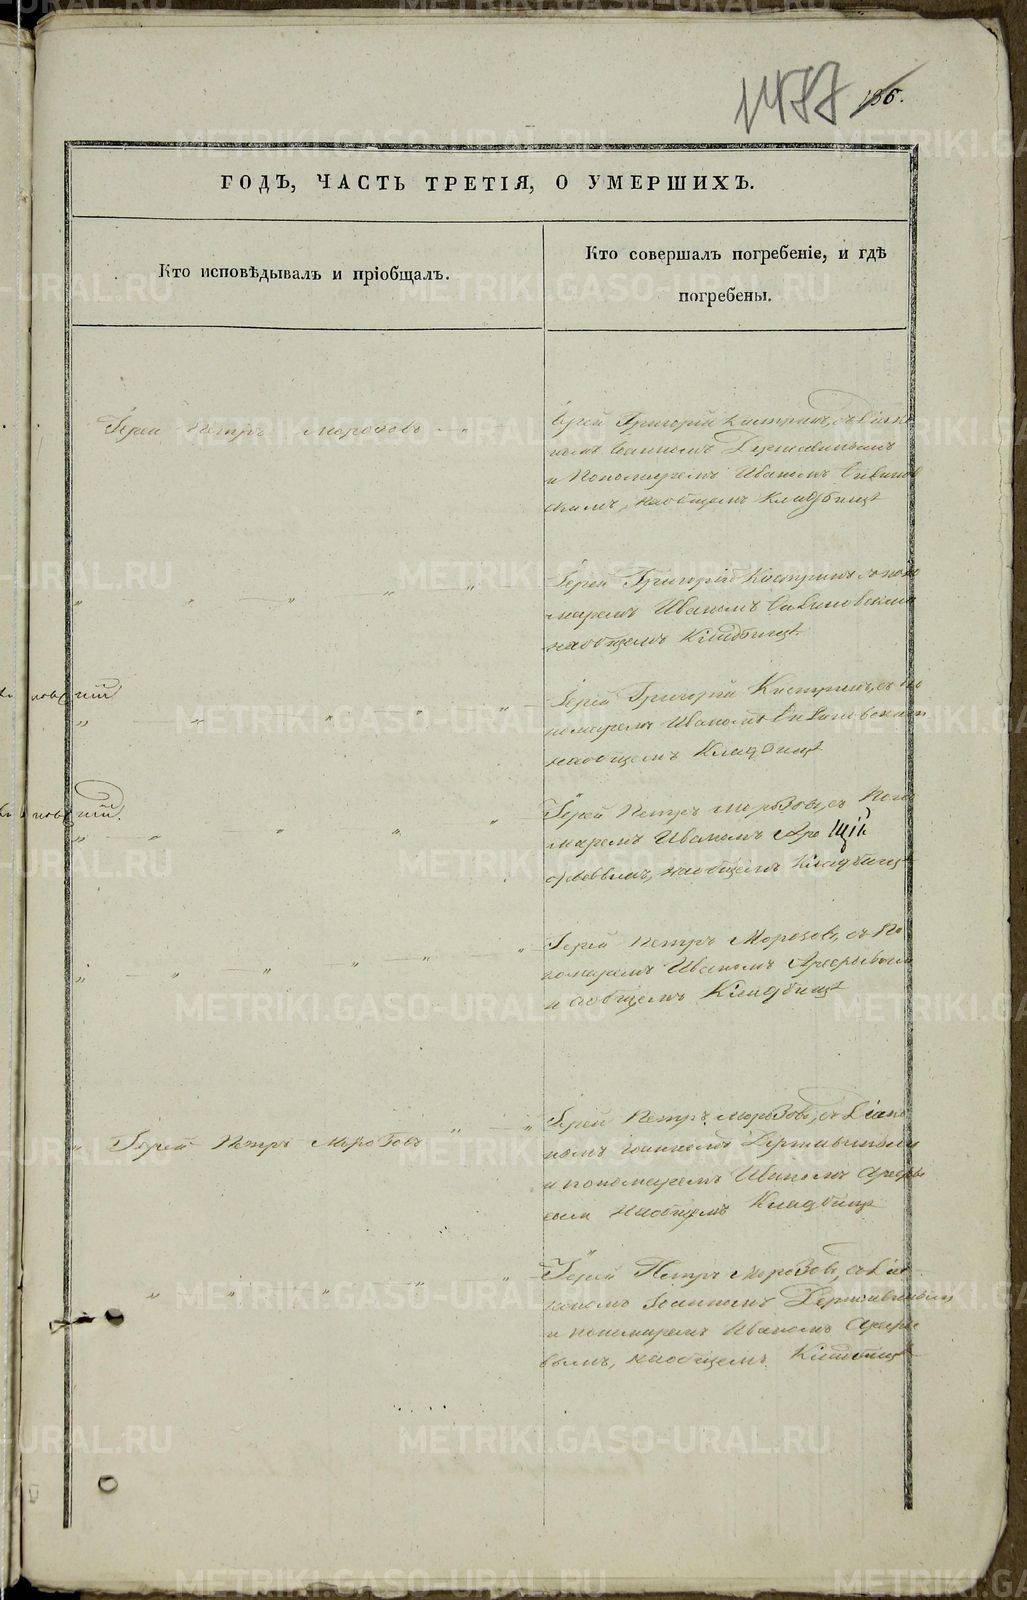 1477 186.
ГОДЪ, ЧАСТЬ ТРЕТІЯ, О УМЕРШИХЪ.
Кто исповѣдывалъ и пріобщалъ.
Кто совершалъ погребеніе, и гдѣ
погребены.
Іерей Петръ Морозовъ
Іерей Григорій Кастринъ, съ Діако
номъ Іоанномъ Державинымъ
и Пономаремъ Иваномъ Сивинов
скимъ, на общемъ Кладбищѣ
Іерей Григорій Кастринъ, съ поно
маремъ Иваномъ Сивиновскимъ
на общемъ Кладбищѣ.
Іерей Григорій Кастринъ, съ по
номаремъ Иваномъ Сивиновскимъ
на общемъ Кладбищѣ
Іерей Петръ Морозовъ, съ Поно
маремъ Иваномъ
на общемъ Кладбищѣ
Іерей Петръ Морозовъ, съ По
номаремъ Иваномъ
на общемъ Кладбищѣ
Іерей Петръ Морозовъ
Іерей Петръ Морозовъ, съ Діако
номъ Іоанномъ Державинымъ
и пономаремъ Иваномъ
на общемъ Кладбищѣ
Іерей Петръ Морозовъ, съ Діа
кономъ Іоанномъ Державинымъ
и пономаремъ Иваномъ
вымъ, на общемъ Кладбищѣ
METRIKI.GASO-URAL.RU